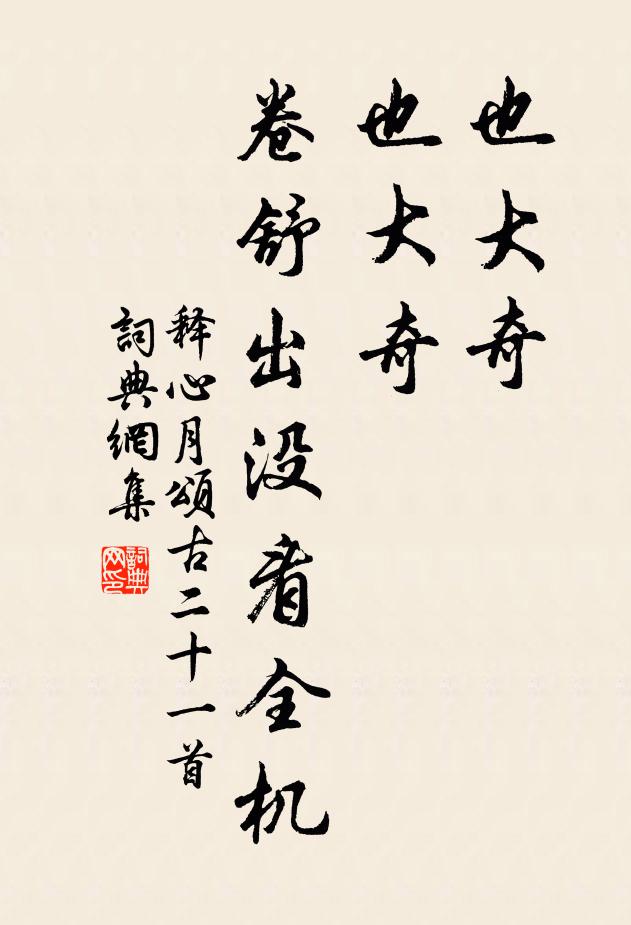 也大奇
也大奇
卷舒出没看全机
释心月頌古二十一首
詞典網集
詞典
网印